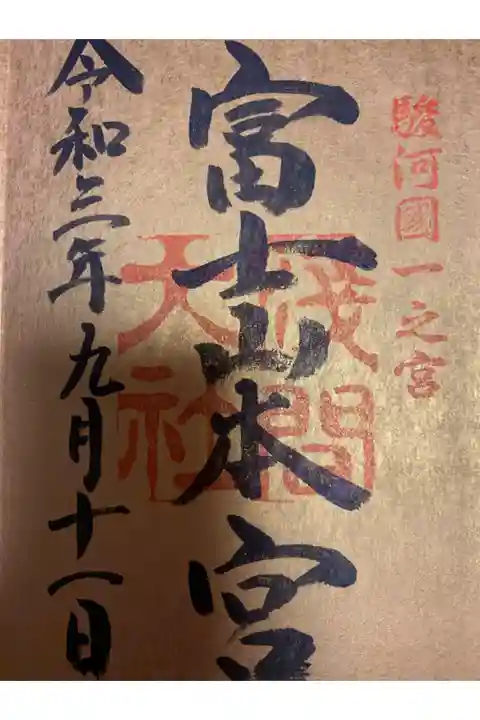 駿河國一之宮
富士山本宮
浅間
大社
令和三年九月十一日